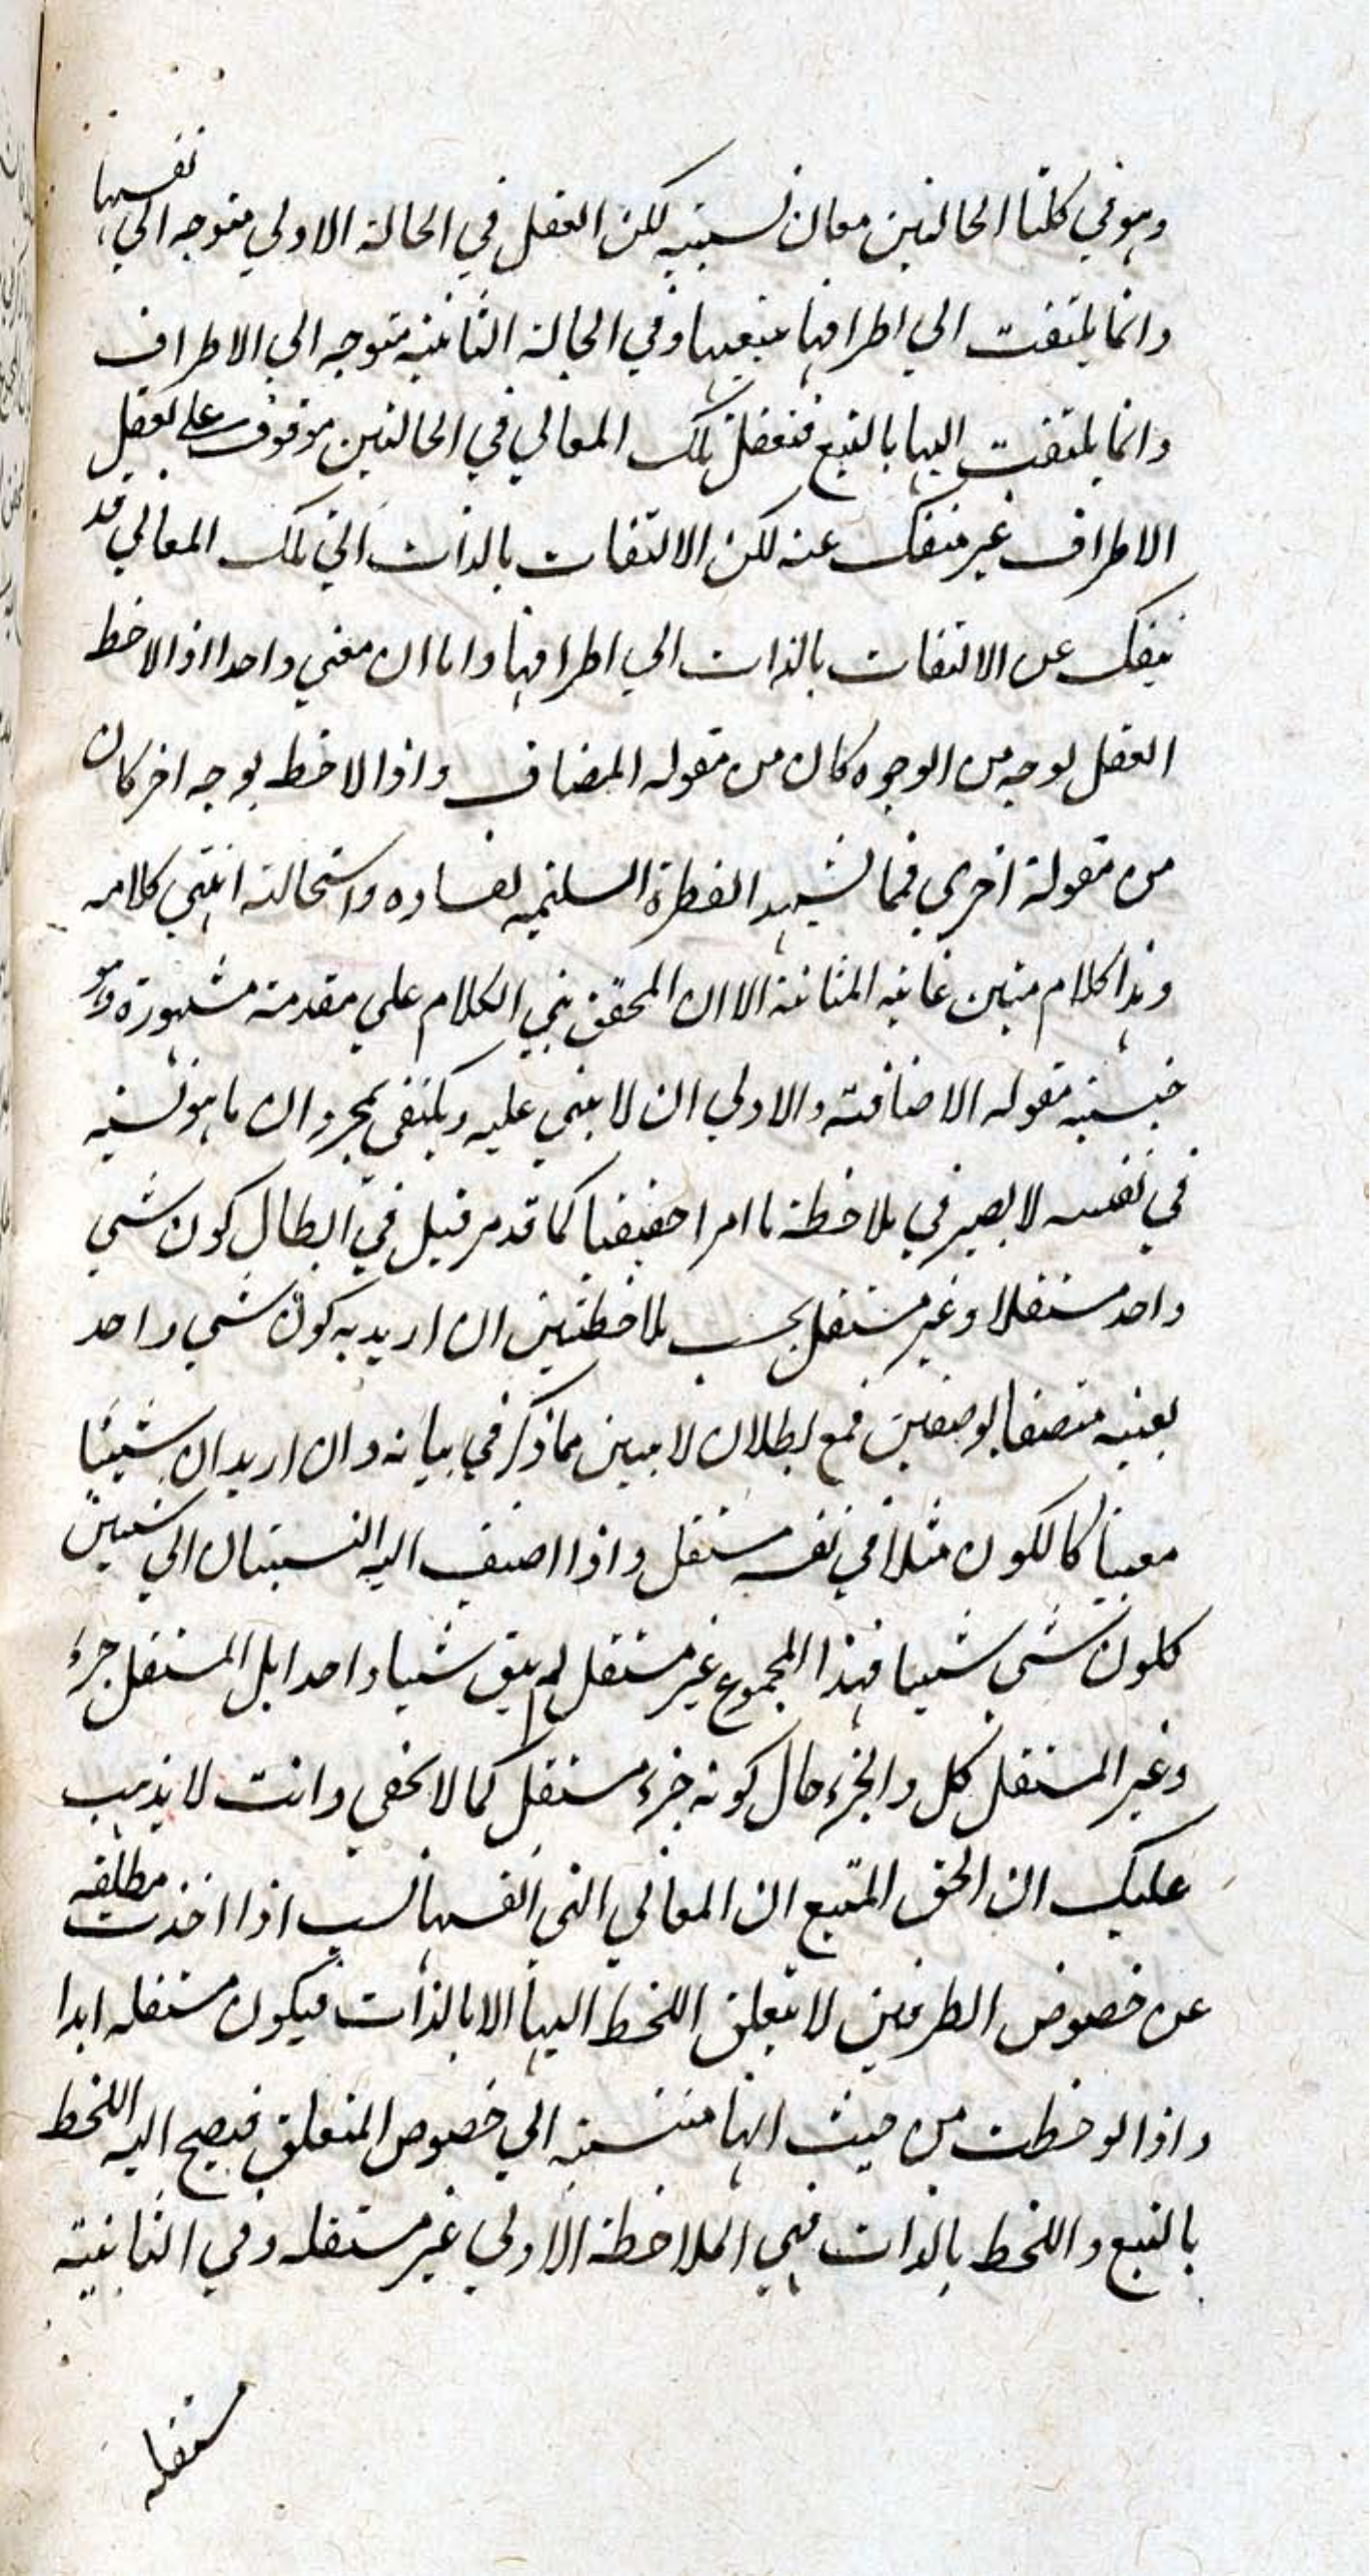 وهو في كلتا الحالتين معان نسبيه لكن العقل في الحالة الاولي متوجه الي نفسها
وانما يلتفت الي اطرافها بتبعيها وفي الحالة الثانيه متوجه الي الاطراف
وانما يلتفت اليها بالتبع فتعقل تلك المعاني في الحالتين موقوف علي تعقل
الاطراف غير منفك عنه لكن الالتفات بالذات الي تلك المعاني قد
ينفك عن الالتفات بالذات الي اطرافها واما ان معني واحدا اذا لاحظ
العقل بوجه من الوجوه كان من مقوله المضاف واذا لاحظ بوجه اخر كان
من مقولة اخري فمما يشهد الفطرة السليمه بفساده واستحالته انتهي كلامه
وهذا كلام متين غايه المتانة الا ان المحقق بني الكلام علي مقدمة مشهورة وهو
جنسيه مقوله الاضافة والاولي ان لا يبني عليه ويكتفي بمجرد ان ما هو نسبه
في نفسه لا يصير في ملاحظة ما امرا حقيقيا كما قد مر قيل في ابطال كون شي
واحد مستقلا وغير مستقل بحسب ملاحظتين ان اريد به كون شي واحد
بعينه متصفا بوصفين فمع بطلان لا يبين مما ذكر في بيانه وان اريد ان شيئا
معينا كالكون مثلا في نفسه مستقل واذا اضيف اليه النسبتان الي شيئين
ككون شي شيئا فهذا المجموع غير مستقل لم يبق شيا واحدا بل المستقل جزء
وغير المستقل كل والجزء حال كونه جزء مستقل كما لا يخفي وانت لا يذهب
عليك ان الحق المتبع ان المعاني التي انفسها نسب اذا اخذت مطلقه
عن خصوص الطرفين لا يتعلق اللحظ اليها الا بالذات فيكون مستقله ابدا
واذا لوحظت من حيث انها منتسبه الي خصوص المتعلق فيصح اليه اللحظ
بالتبع واللحظ بالذات فهي الملاحظة الاولي غير مستقله وفي الثانية
مستقله